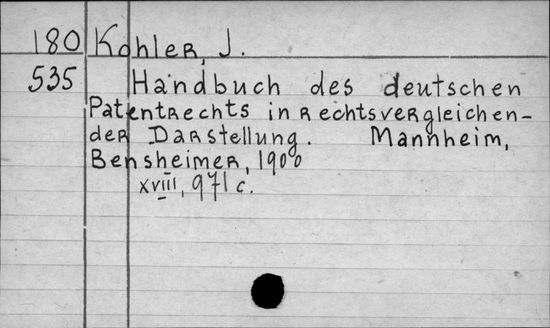 180 Kohler, J.
535 Handbuch des deutschen
Patentrechts in rechtsvergleichen-
der Darstellung. Mannheim,
Bensheimer, 1900
xviii, 971 c.